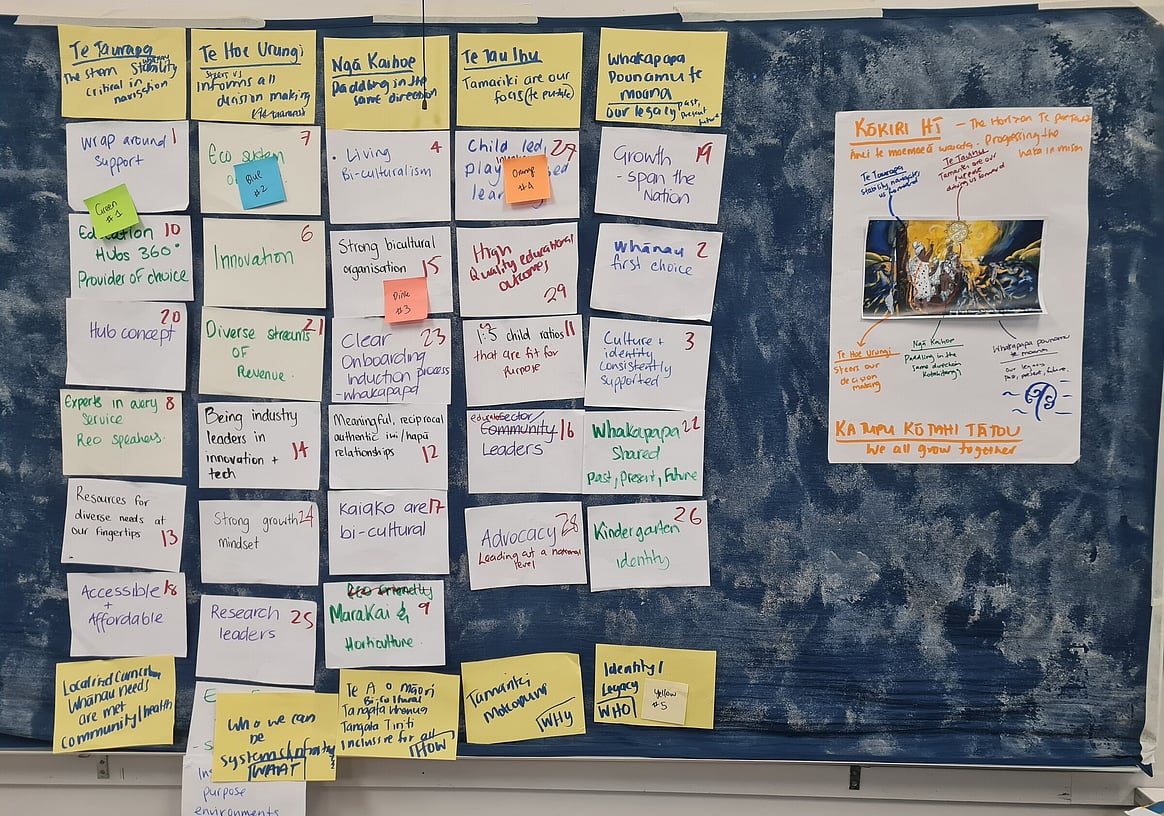 Te Taurapa
The stern Stability
critical in
navigation
wrap around 1
support
Green
#1
Education 10
Hubs 360°
Provider of choice
20
Hub concept
Experts in every 8
Service
Reo speakers.
Resources for
diverse needs at
our fingertips 13
Accessible 18
+
Affordable
Localised Curriculum
Whānau needs
are met
community/health
Te Hoe Urungi
Steers us
Informs all
decision making
7
Eco system
Blue
#2
6
Innovation
Diverse streams 21
OF
Revenue.
Being industry
leaders in
innovation + 14
tech
Strong growth 24
mindset
Research 25
leaders
Who we can
be
WHAT
purpose
environments
Ngā Kaihoe
Paddling in the
same direction
. Living 4
Bi-culturalism
Strong bicultural
organisation 15
Pink
#3
Clear 23
Onboarding
Induction process
-whakapapa
Meaningful, reciprocal
authentic iwi/hapū
relationships 12
Kaiako are 17
bi-cultural
Eco friendly
Marakai & 9
Horticulture.
Te Ao māori
Bi-cultural
Tangata whenua
Tangata Tiriti
Inclusive for all
HOW
Te Tau Ihu
Tamariki are our
focus (te putake)
Child led 27
play
Orange
#4
High
Quality educational
outcomes
29
1:5 child ratios 11
that are fit for
purpose
Sector/
Community 16
Leaders
Advocacy 28
Leading at a national
level
Tamariki
Mokopuna
WHY
Whakapapa
Pounamu te
moana
our legacy past,
present
future
Growth 19
- span the
Nation
Whānau 2
first choice
Culture + 3
identity
consistently
supported
Whakapapa 22
Shared
Past, Present, Future
Kindergarten 26
identity
Identity/
Legacy
WHO
Yellow
#5
KŌKIRI HĪ - The Horizon Te pae tawhiti
Anei te moemoeā waiata. Progressing the
waka in mison
Te Taurapa
stability, navigates
us forward
Te Tauihu
Tamariki are our
purpose
driving us forward
Te Hoe Urungi
Steers our
decision
making
Ngā Kaihoe
Paddling in the
same direction
Kotahitanga
Whakapapa pounamu
te moana
our legacy
past, present, future.
KA TUPU KŌTAHI TĀTOU
We all grow together